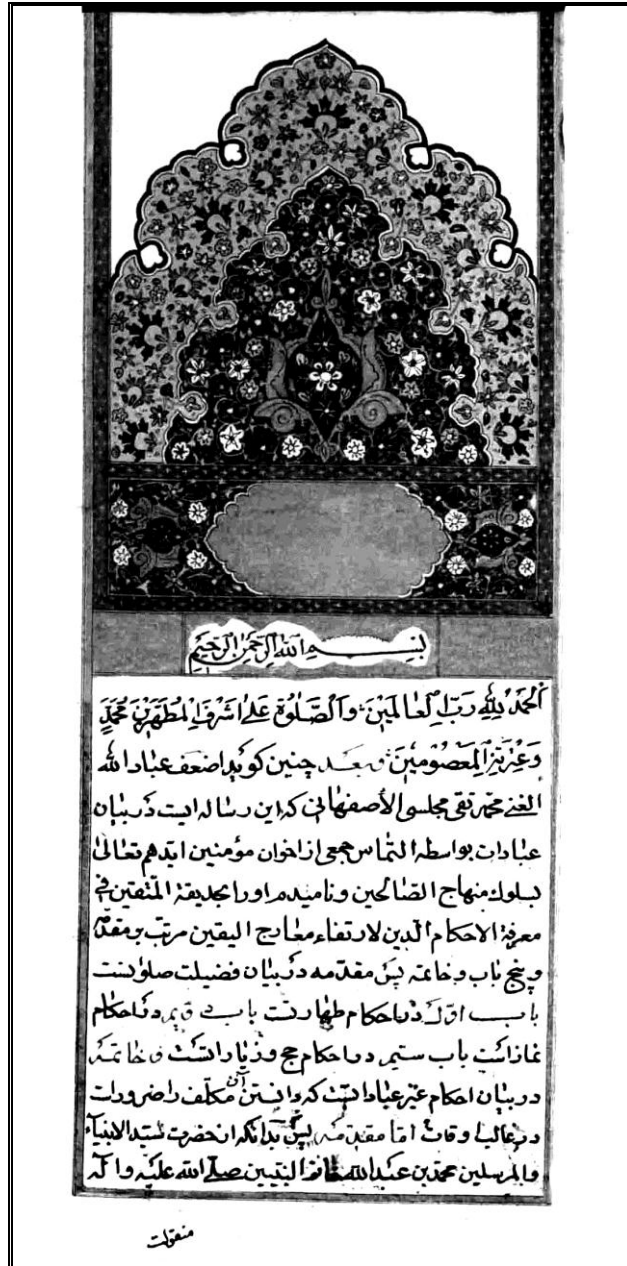 بسم الله الرحمن الرحيم
اَلحَمدُ لِلّٰهِ رَبِّ الْعٰالَمينَ وَالصَّلوٰةُ عَلىٰ اَشرَفِ المُطَهَّرينَ مُحَمَّدٍ
وَعِترَتِهِ المَعصُومينَ و بعد چنین کوید اضعف عباد الله
الغنی محمد تقی مجلسی الأصفهانی که این رساله ایست در بیان
عبادات بواسطه التماس جمعی از اخوان مؤمنین ایدهم تعالی
بسلوك منهاج الصالحین و نامیدم او را بحدیقة المتقین فی
معرفة الاحکام الدین لارتفاء معارج الیقین مرتب بر مقدمه
و پنج باب و خاتمه پس مقدمه در بیان فضیلت صلوتست
باب اول در احکام طهارتست باب دویم در احکام
نمازاست باب سیم در احکام حج و زیاراتست و خاتمه
در بیان احکام غیر عباداتست که دانستن آن مکلف را ضروراست
در غالب اوقات اما مقدمه پس بدانکه از حضرت سید الانبیاء
والمرسلین محمد بن عبد الله خاتم النبیین صلی الله علیه و اله
منقولست